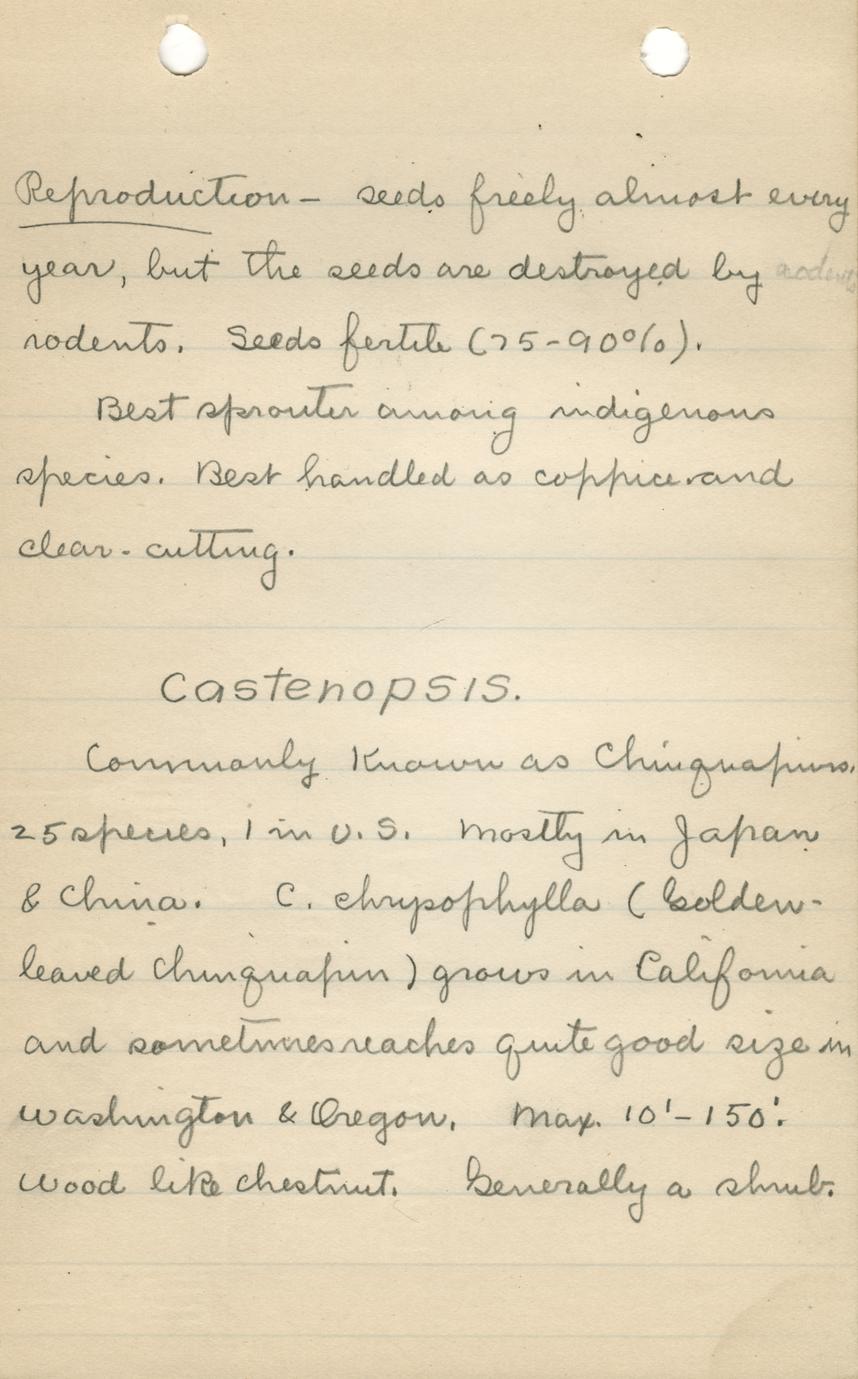 Reproduction - seeds freely almost every
year, but the seeds are destroyed by rodents
rodents. Seeds fertile (75-90%).
Best sprouter among indigenous
species. Best handled as coppice and
clear-cutting.
Castenopsis.
Commonly known as Chinquapins.
25 species, 1 in U.S. Mostly in Japan
& China. C. chrysophylla (Golden-
leaved Chinquapin) grows in California
and sometimes reaches quite good size in
Washington & Oregon. Max. 10'-150'.
Wood like chestnut. Generally a shrub.